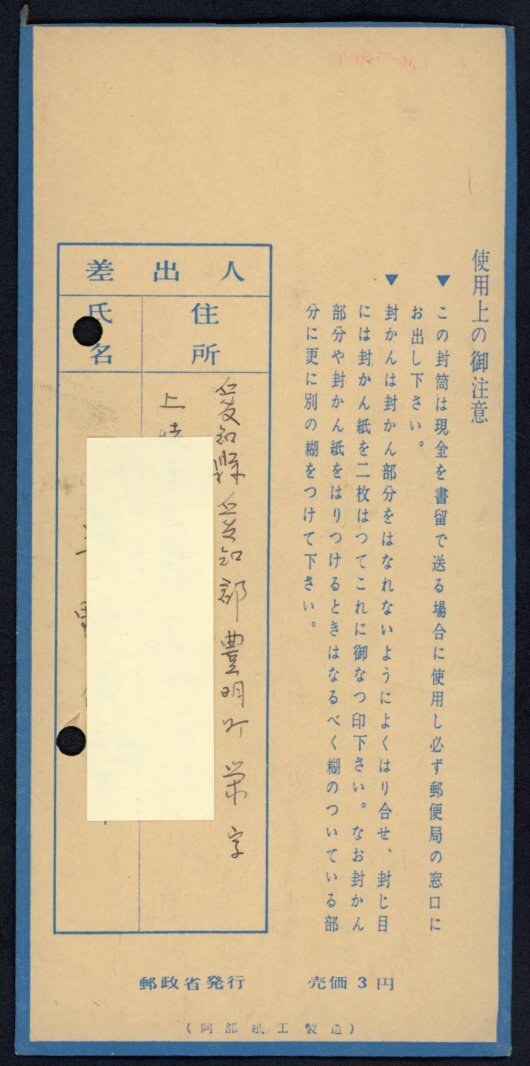 使用上の御注意
▼この封筒は現金を書留で送る場合に使用し必ず郵便局の窓口に
お出し下さい。
▼封かんは封かん部分をはなれないようによくはり合せ、封じ目
には封かん紙を二枚はつてこれに御なつ印下さい。なお封かん
部分や封かん紙をはりつけるときはなるべく糊のついている部
分に更に別の糊をつけて下さい。
差出人
住所
氏名
愛知縣愛知郡豊明町栄字
上
郵政省発行 売価3円
(阿部紙工製造)